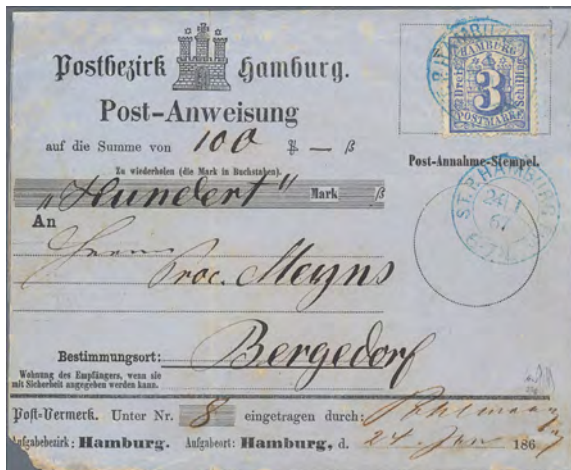 Postbezirk Hamburg.
Post-Anweisung
auf die Summe von 100 — ß
Zu wiederholen (die Mark in Buchstaben).
„Hundert“ Mark ß
An
Herrn
Proc. Meyns
Bestimmungsort: Bergedorf
Wohnung des Empfängers, wenn sie
mit Sicherheit angegeben werden kann.
Post-Vermerk. Unter Nr. 8 eingetragen durch:
Aufgabebezirk: Hamburg. Aufgabeort: Hamburg, d. 24 Jan 1867
HAMBURG
Drei Schilling
3
POSTMARKE
Post-Annahme-Stempel.
ST.P. HAMBURG
24 1
67